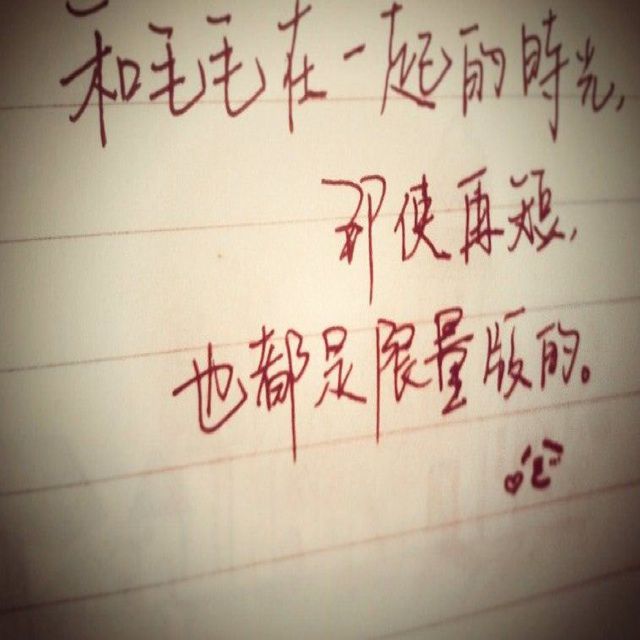 和毛毛在一起的時光,
即使再短,
也都是限量版的。